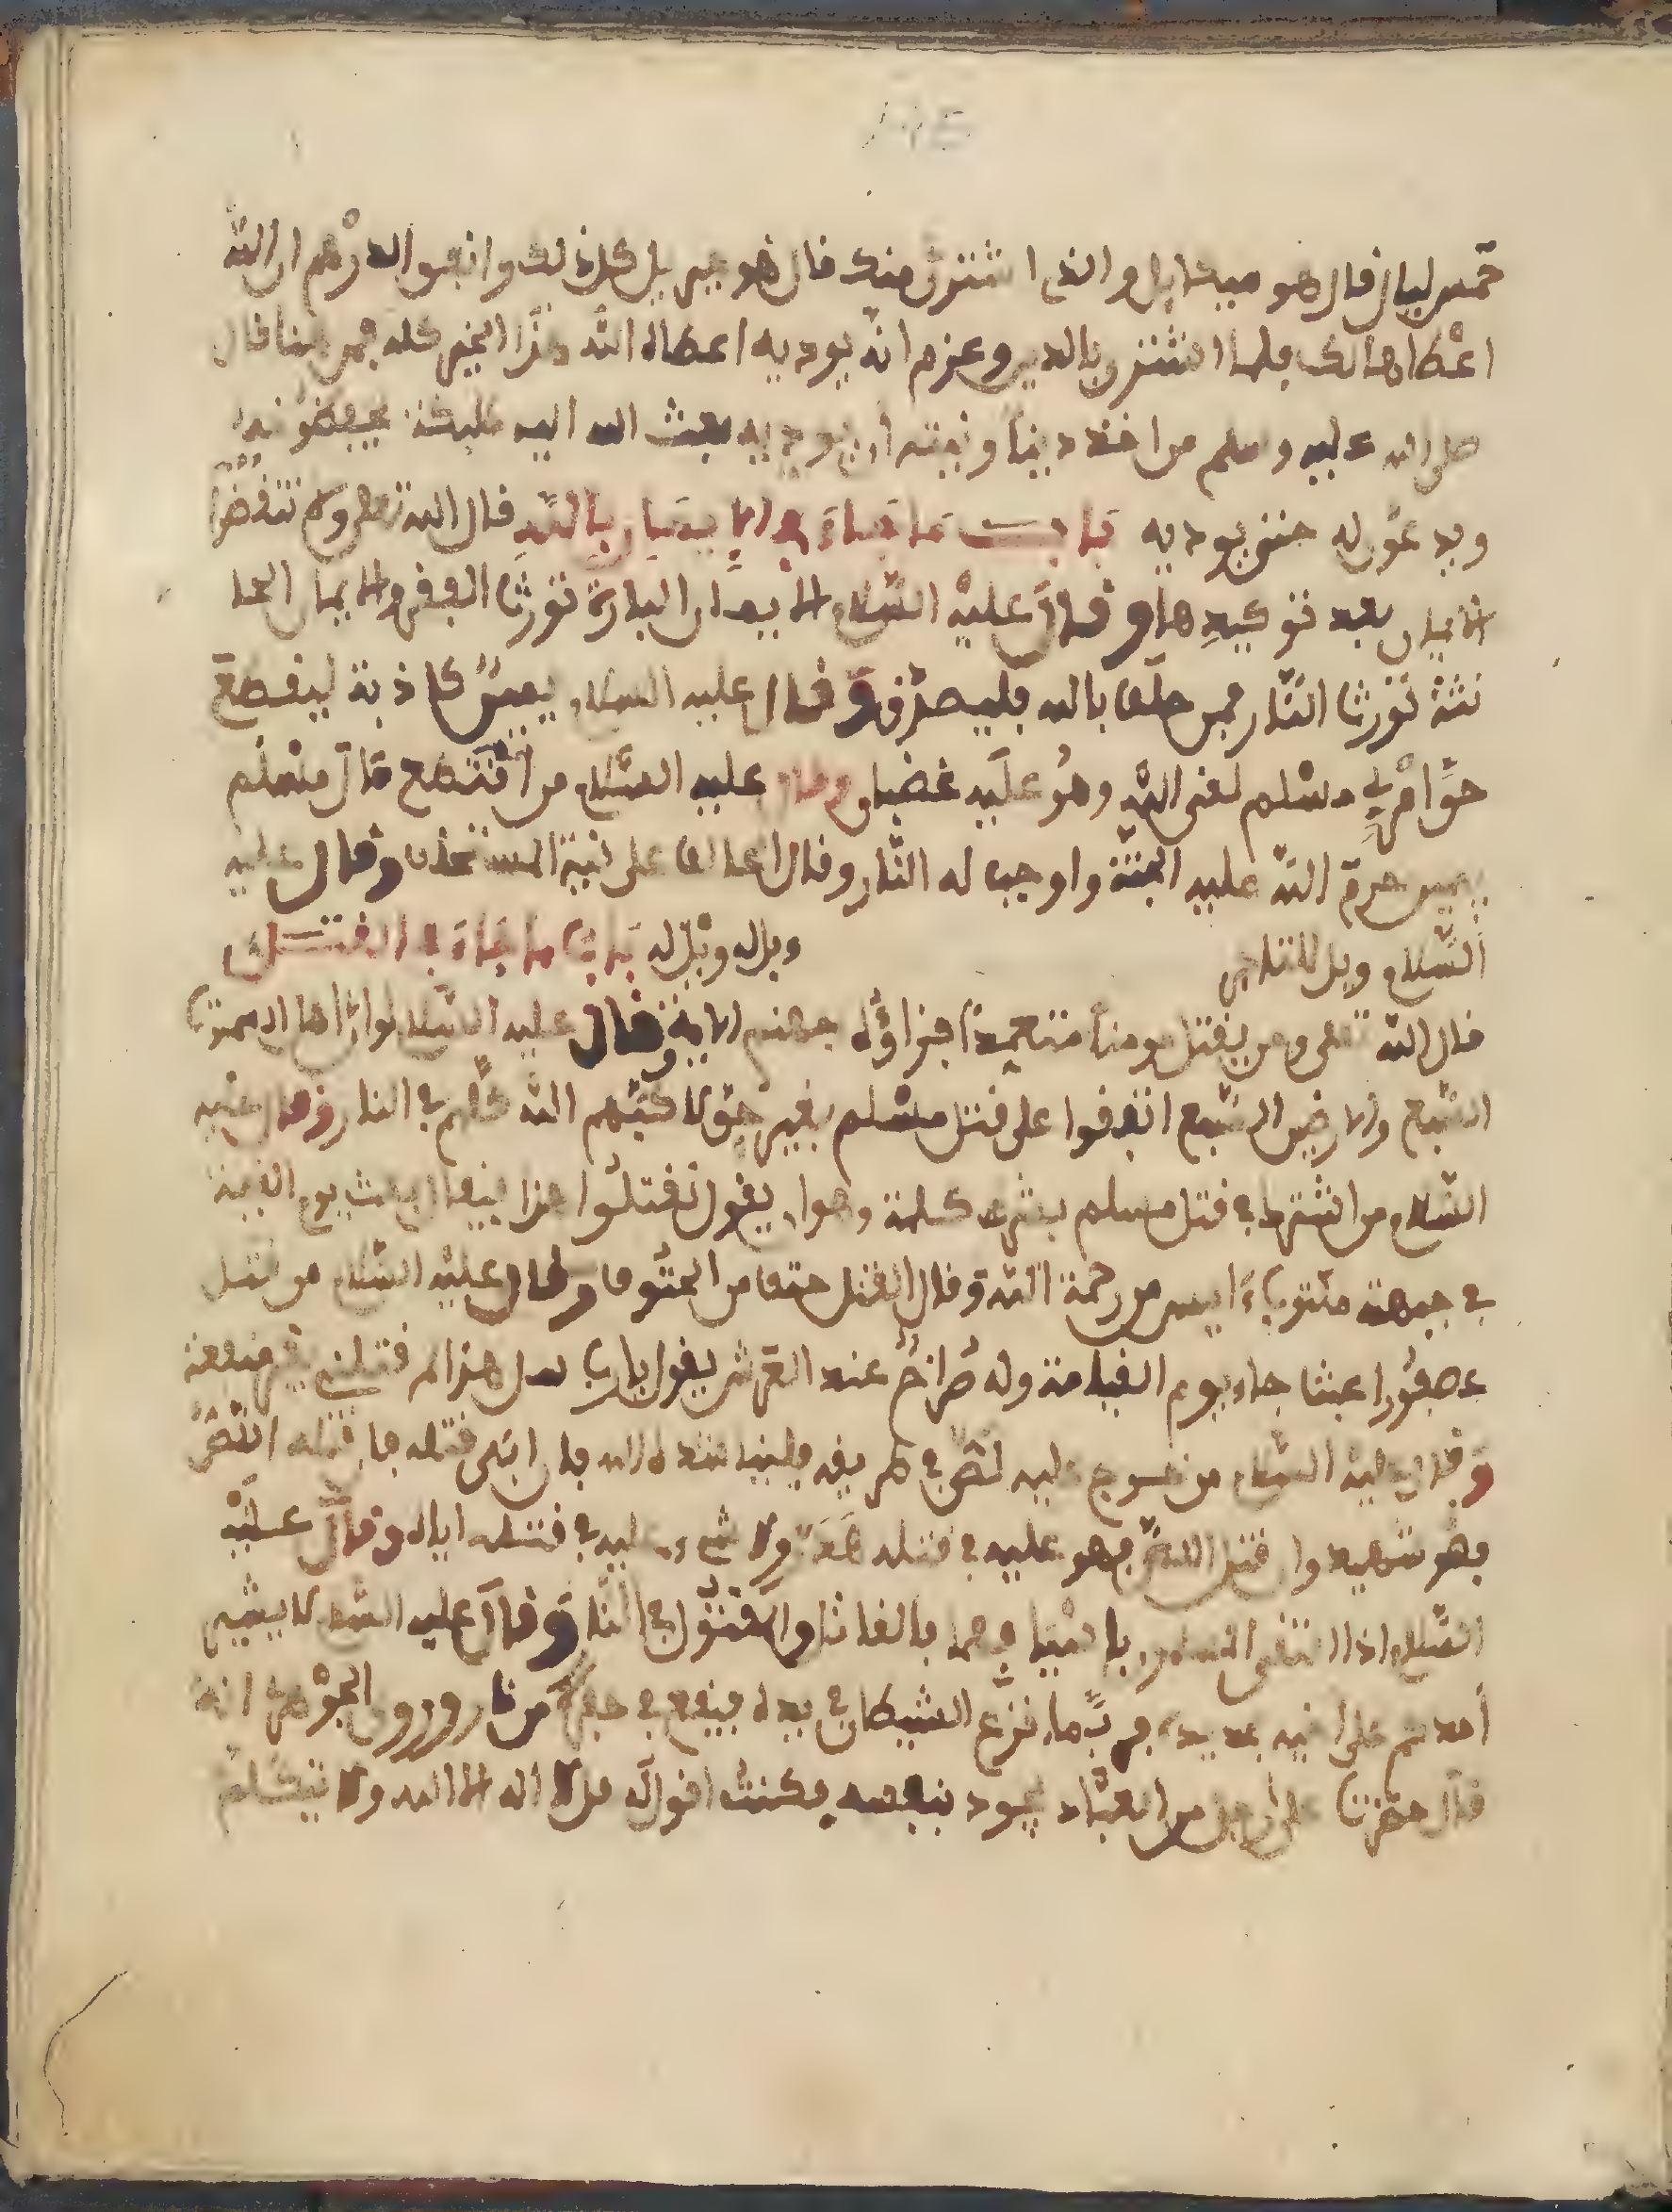 خمس ليال قال هو ميكايل والذى اشترى منك قال هو جبريل كل ذلك وانبوا الدرهم ان الله
اعطاها لك فلما اشترى بالدين وعزم انه يوديه اعطاه الله هذا الخير كله فمن هنا قال
صلى الله عليه وسلم من اخذ دينا ونيته ان يوديه بعث الله اليه مليكة يحفظونه
ويدعون له حتى يوديه باب ما جاء في الايمان بالله قال الله تعلى ولا تنقضوا
الايمان بعد توكيدها وقال عليه السلام الايمان البارة تورث الفقر والايمان الحا
نثة تورث النار فمن حلف بالله فليصدق وقال عليه السلام يمين كاذبة ليقطع
حق امرئ مسلم لقى الله وهو عليه غضبان وقال عليه السلام من اقتطع مال مسلم
بيمين حرم الله عليه الجنة واوجب له النار وقال الحالف على نية المستحلف وقال عليه
السلام ويل للتلاجى ويل له ويل له باب ما جاء في القتل
قال الله تعلى ومن يقتل مومنا متعمدا فجزاؤه جهنم الاية وقال عليه السلام لوان اهل السموت
السبع والارضين السبع اتفقوا على قتل مسلم بغير حق لاكبهم الله كلهم في النار وقال عليه
السلام من اشترك في قتل مسلم بشطر كلمة وهو ان يقول نقتلوا هذا فيقال يبعث يوم القيمة
في جبهته مكتوب ءايس من رحمة الله وقال القتل حتف من الحتوف وقال عليه السلام من قتل
عصفورا عبثا جاء يوم القيامة وله صراخ عند العرش يقول يارب سل هذا لم قتلني بغير منفعة
وقال عليه السلام من خرج عليه لص في طريقه فليناشده الله فان ابى قتله فان قتله اللص
فهو شهيد وان قتل اللص فهو عليه في قتله ولا شيء عليه في قتله اياه وقال عليه
السلام اذا التقى المسلمان بالسيف فهما فالقاتل والمقتول في النار وقال عليه السلام لا يشير
احدكم على اخيه بحديدة فربما نزع الشيطان في يده فيقع في حفرة من نار وروى الجوهرى انه
قال حضرت على رجل من العباد يجود بنفسه فكنت اقول له قل لا اله الا الله ولا يتكلم